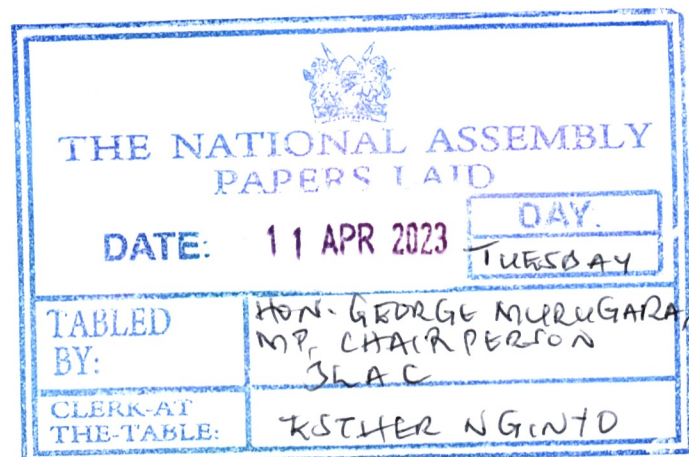 THE NATIONAL ASSEMBLY
PAPERS LAID
DATE: 11 APR 2023
DAY.
TUESDAY
TABLED
BY:
HON. GEORGE MURUGARA,
MP, CHAIRPERSON
JLAC
CLERK-AT
THE-TABLE:
ESTHER NGINYO